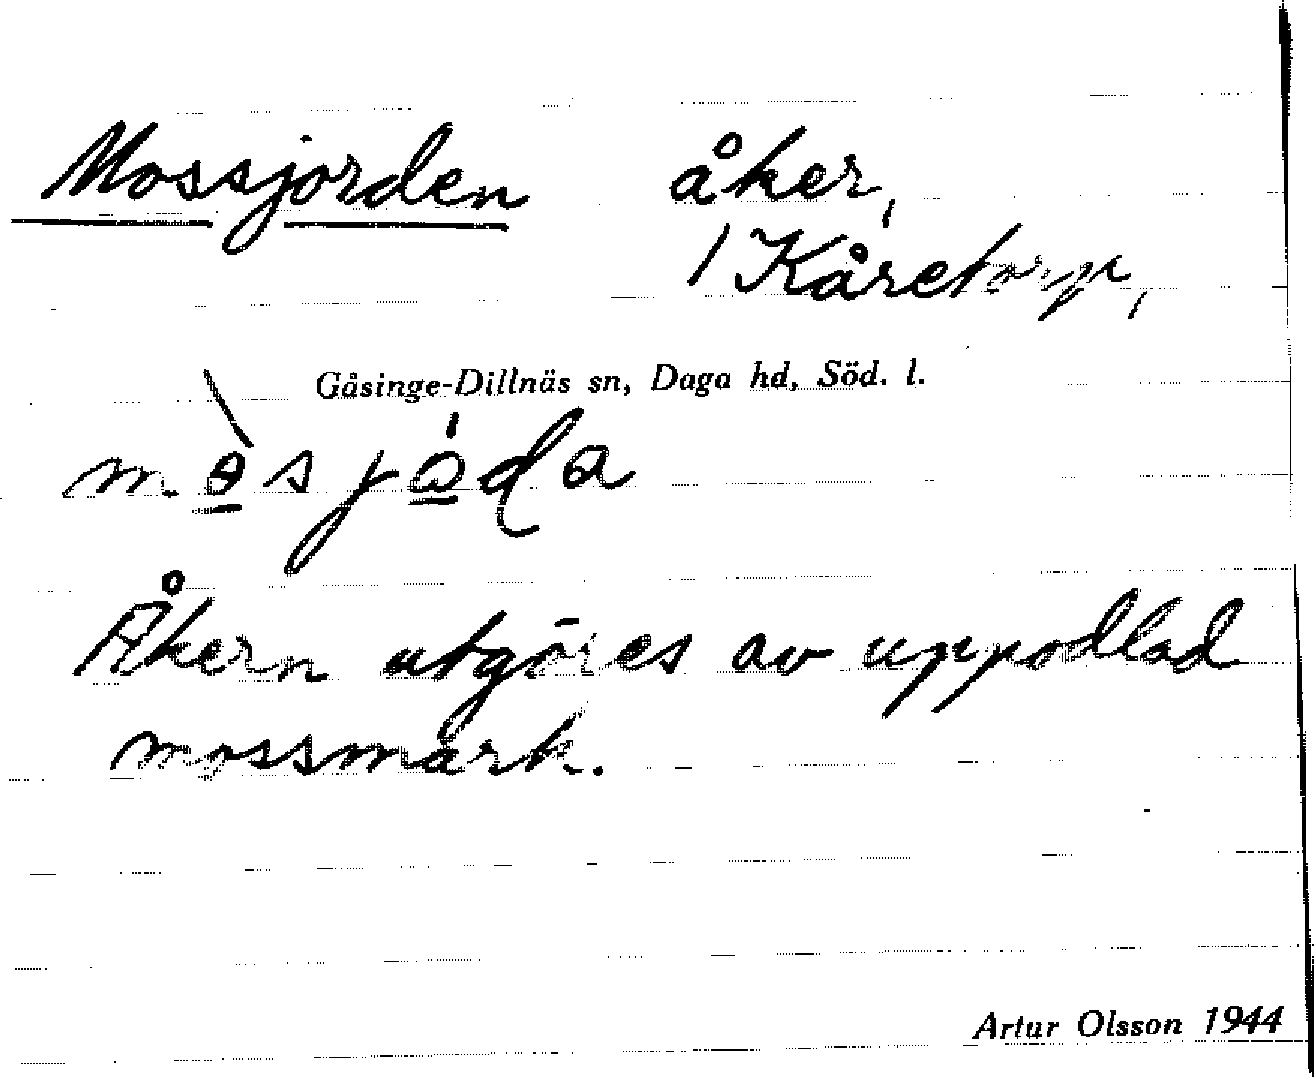 Mossjorden åker,
/ Kåretorp,
Gåsinge-Dillnäs sn, Daga hd, Söd. l.
Åkern utgöres av uppodlad
mossmark.
Artur Olsson 1944